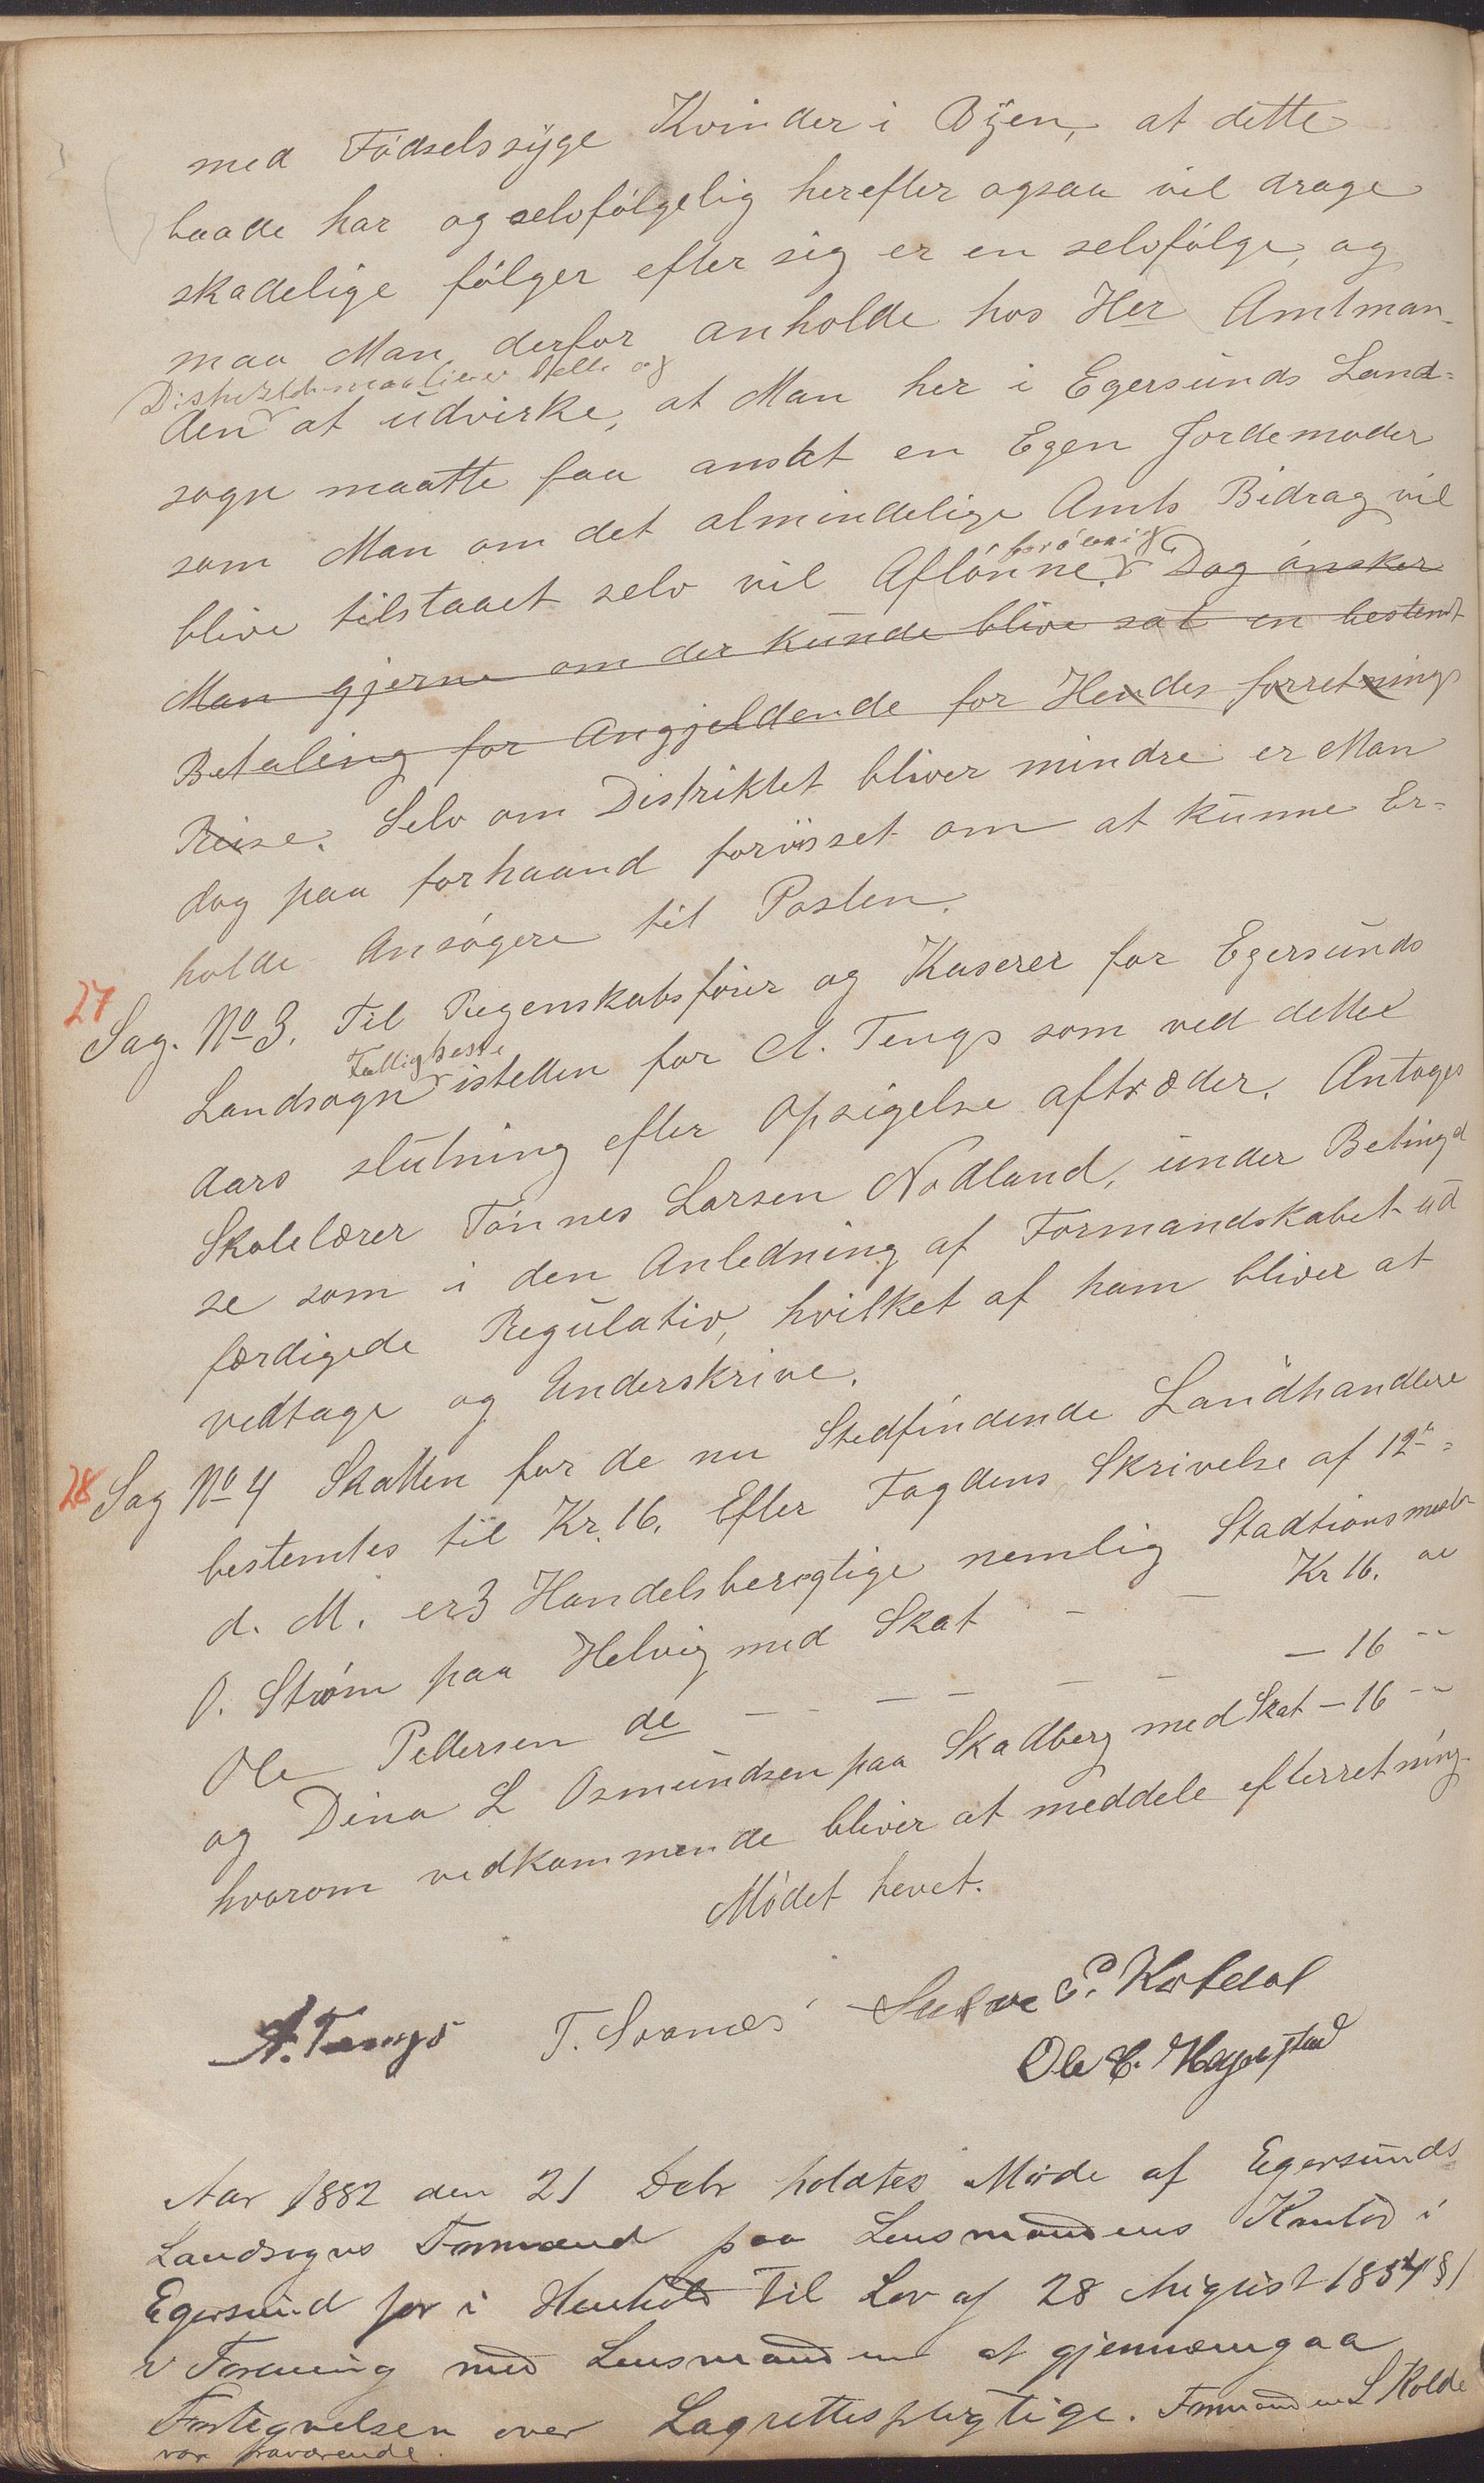 med Fødselssyge Kvinder i Byen, at dette
baade har og selvfølgelig herefter ogsaa vil drage
skadelige følger efter sig er en selvfølge, og
maa Man derfor anholde hos Her Amtman-
den at udvirke, at Man her i Egersunds Land-
sogn maatte faa ansat en Egen Jordemoder
som Man om det almindelige Amts Bidrag vil
blive tilstaaet selv vil Aflønne. Dog ønsker
Man gjerne om der kunde blive sat en bestemt
Betaling for Angjeldende for Hendes forretnings
Reise. Selv om Distriktet bliver mindre er Man
dog paa forhaand forvisset om at kunne Er-
holde Ansøgere til Posten.
27
Sag. No 3. Til Regenskabsfører og Kaserer for Egersunds
Fattigkasse
Landsogn istetten for A. Tengs som ved dette
Aars slutning efter Opsigelse aftræder. Antages
Skolelærer Tønnes Larsen Nodland, under Betingel
se som i den Anledning af Formandskabet ud
færdigede Regulativ, hvilket af ham bliver at
vedtage og Underskrive.
28
Sag No 4 Skatten for de nu Stedfindende Landhandlere
bestemtes til Kr. 16. Efter Fogdens Skrivelse af 12te
d. M. er 3 Handelsberegtige nemlig Stadtionsmester
O. Strøm paa Helvig med Skat - - Kr 16.
Ole Pettersen de - - - - - - 16 --
og Dina L Osmundsen paa Skadberg med Skat - 16 --
hvorom vedkommende bliver at meddele efterretning.
Mødet hevet.
A. Tengs T. Svanes P. Koldal
Ole
Aar 1882 den 21 Debr holdtes Møde af Egersunds
Landsogns Formænd paa Lensmandens Kontor i
Egersund for i Henhold til Lov af 28 August 1854 § 1
i Forening med Lensmanden at gjennemgaa
Fortegnelsen over Lagrettespligtige. Formanden
var fraværende.